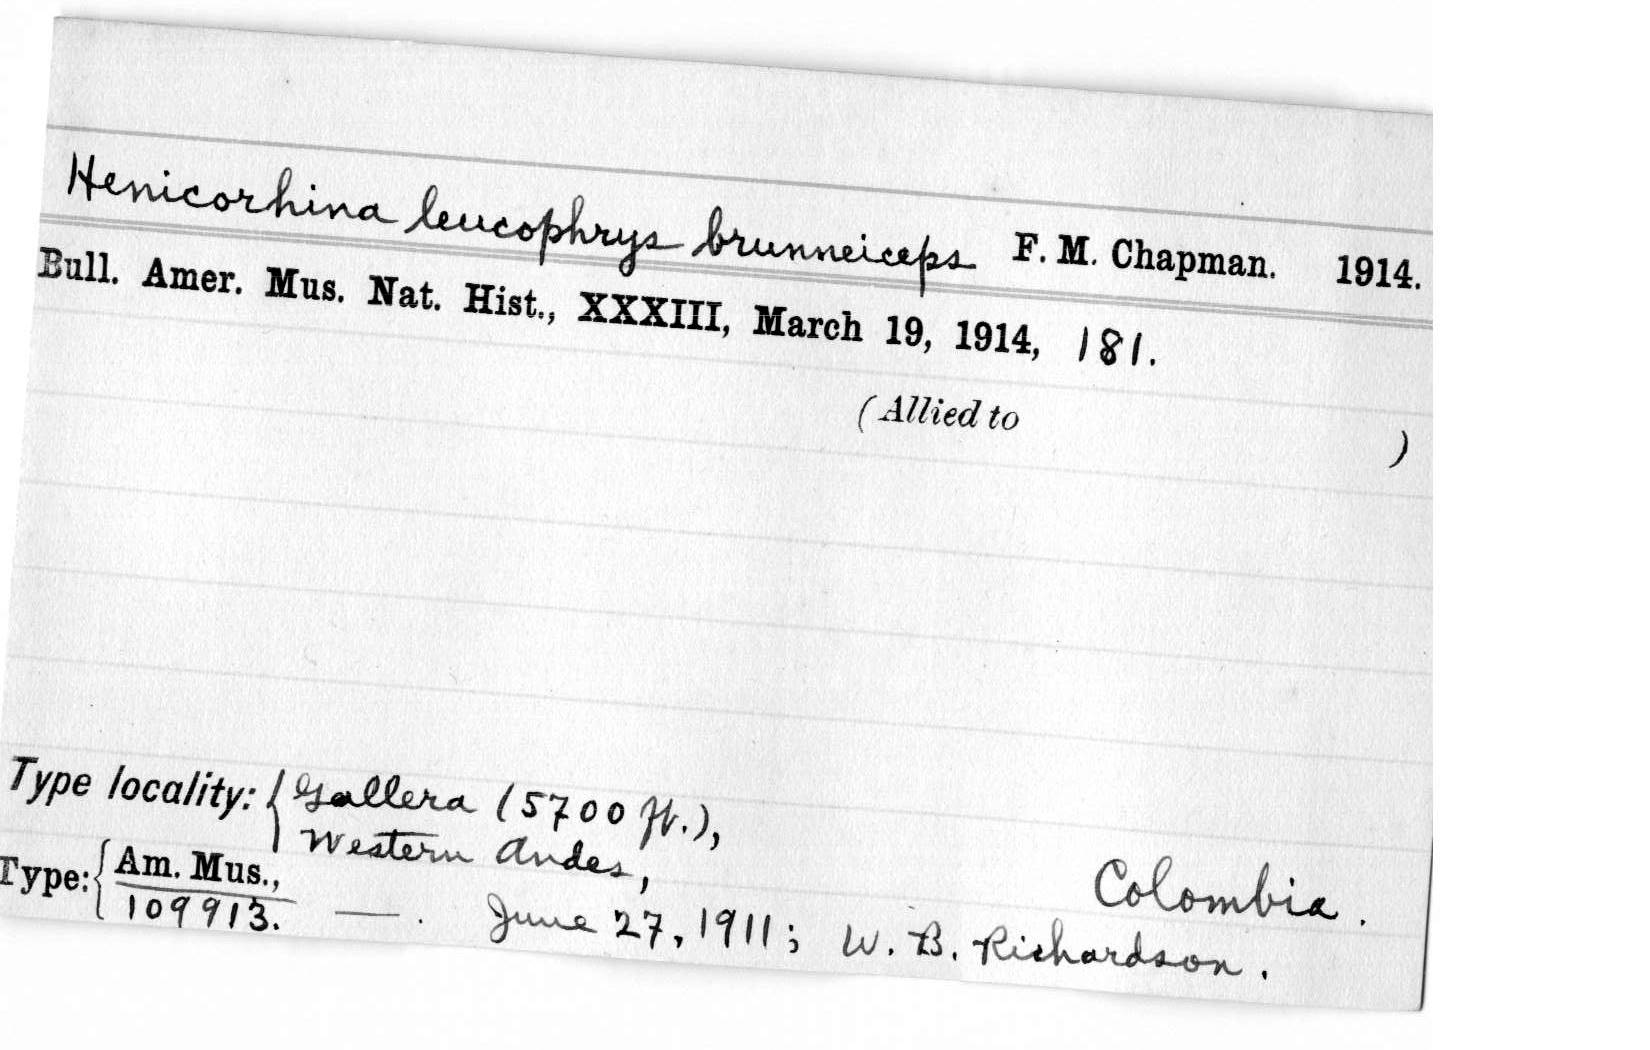 Henicorhina leucophrys brunneiceps F. M. Chapman. 1914.
Bull. Amer. Mus. Nat. Hist., XXXIII, March 19, 1914, 181.
(Allied to )
Type locality: { Gallera (5700 ft.),
Western Andes,
Colombia.
Type: { Am. Mus.,
109913. — . June 27, 1911; W. B. Richardson.